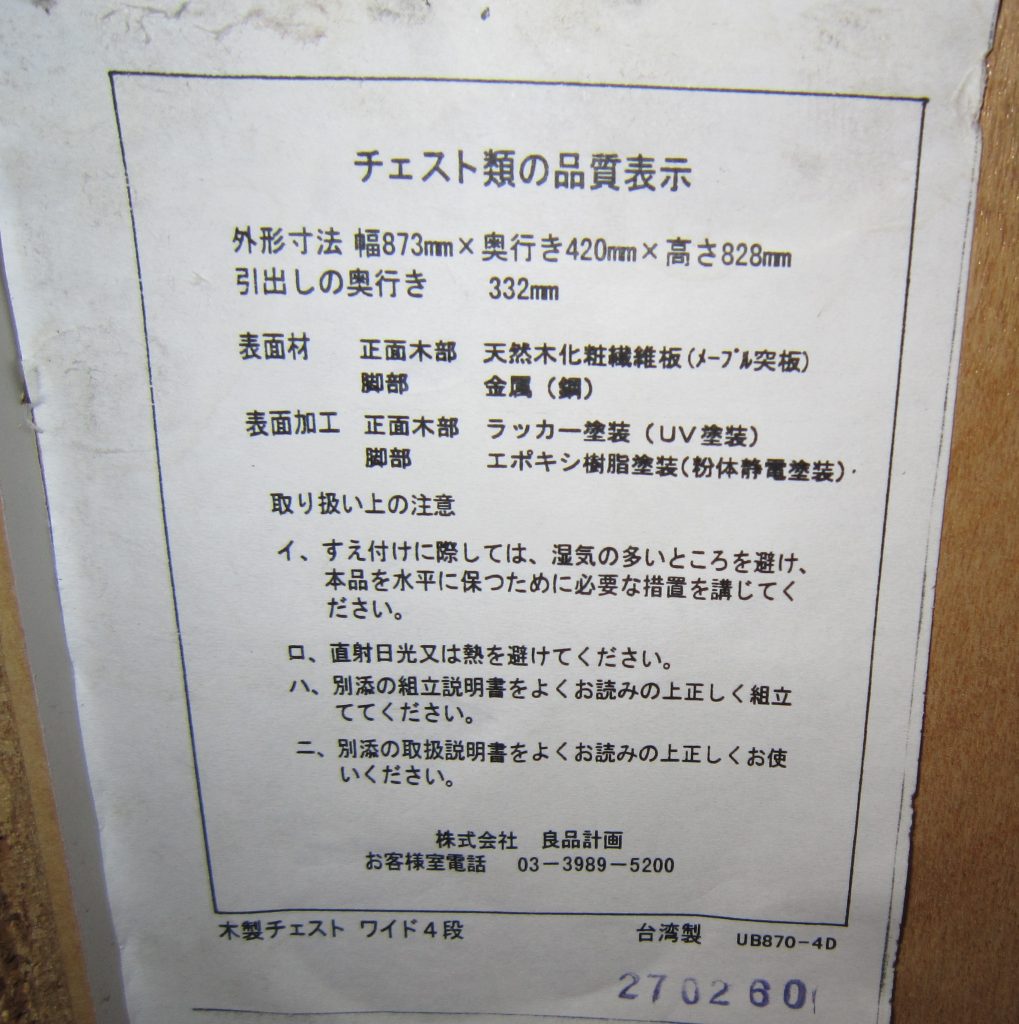 チェスト類の品質表示
外形寸法 幅873mm×奥行き420mm×高さ828mm
引出しの奥行き 332mm
表面材 正面木部 天然木化粧繊維板(ﾒｰﾌﾟﾙ突板)
脚部 金属(鋼)
表面加工 正面木部 ラッカー塗装(UV塗装)
脚部 エポキシ樹脂塗装(粉体静電塗装)
取り扱い上の注意
イ、すえ付けに際しては、湿気の多いところを避け、
本品を水平に保つために必要な措置を講じてく
ださい。
ロ、直射日光又は熱を避けてください。
ハ、別添の組立説明書をよくお読みの上正しく組立
ててください。
ニ、別添の取扱説明書をよくお読みの上正しくお使
いください。
株式会社 良品計画
お客様室電話 03-3989-5200
木製チェスト ワイド4段 台湾製 UB870-4D
270260